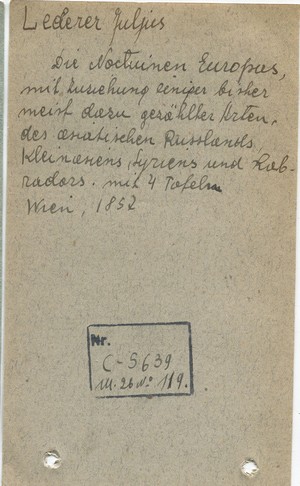 Lederer Juljus
Die Noctuinen Europas,
mit Zuziehung einiger bisher
meist dazu gezählter Arten,
des asiatischen Russlands,
Kleinasiens, Syriens und Lab-
radors. mit 4 Tafeln
Wien, 1857
Nr.
C-5639
III. 26 No 119.